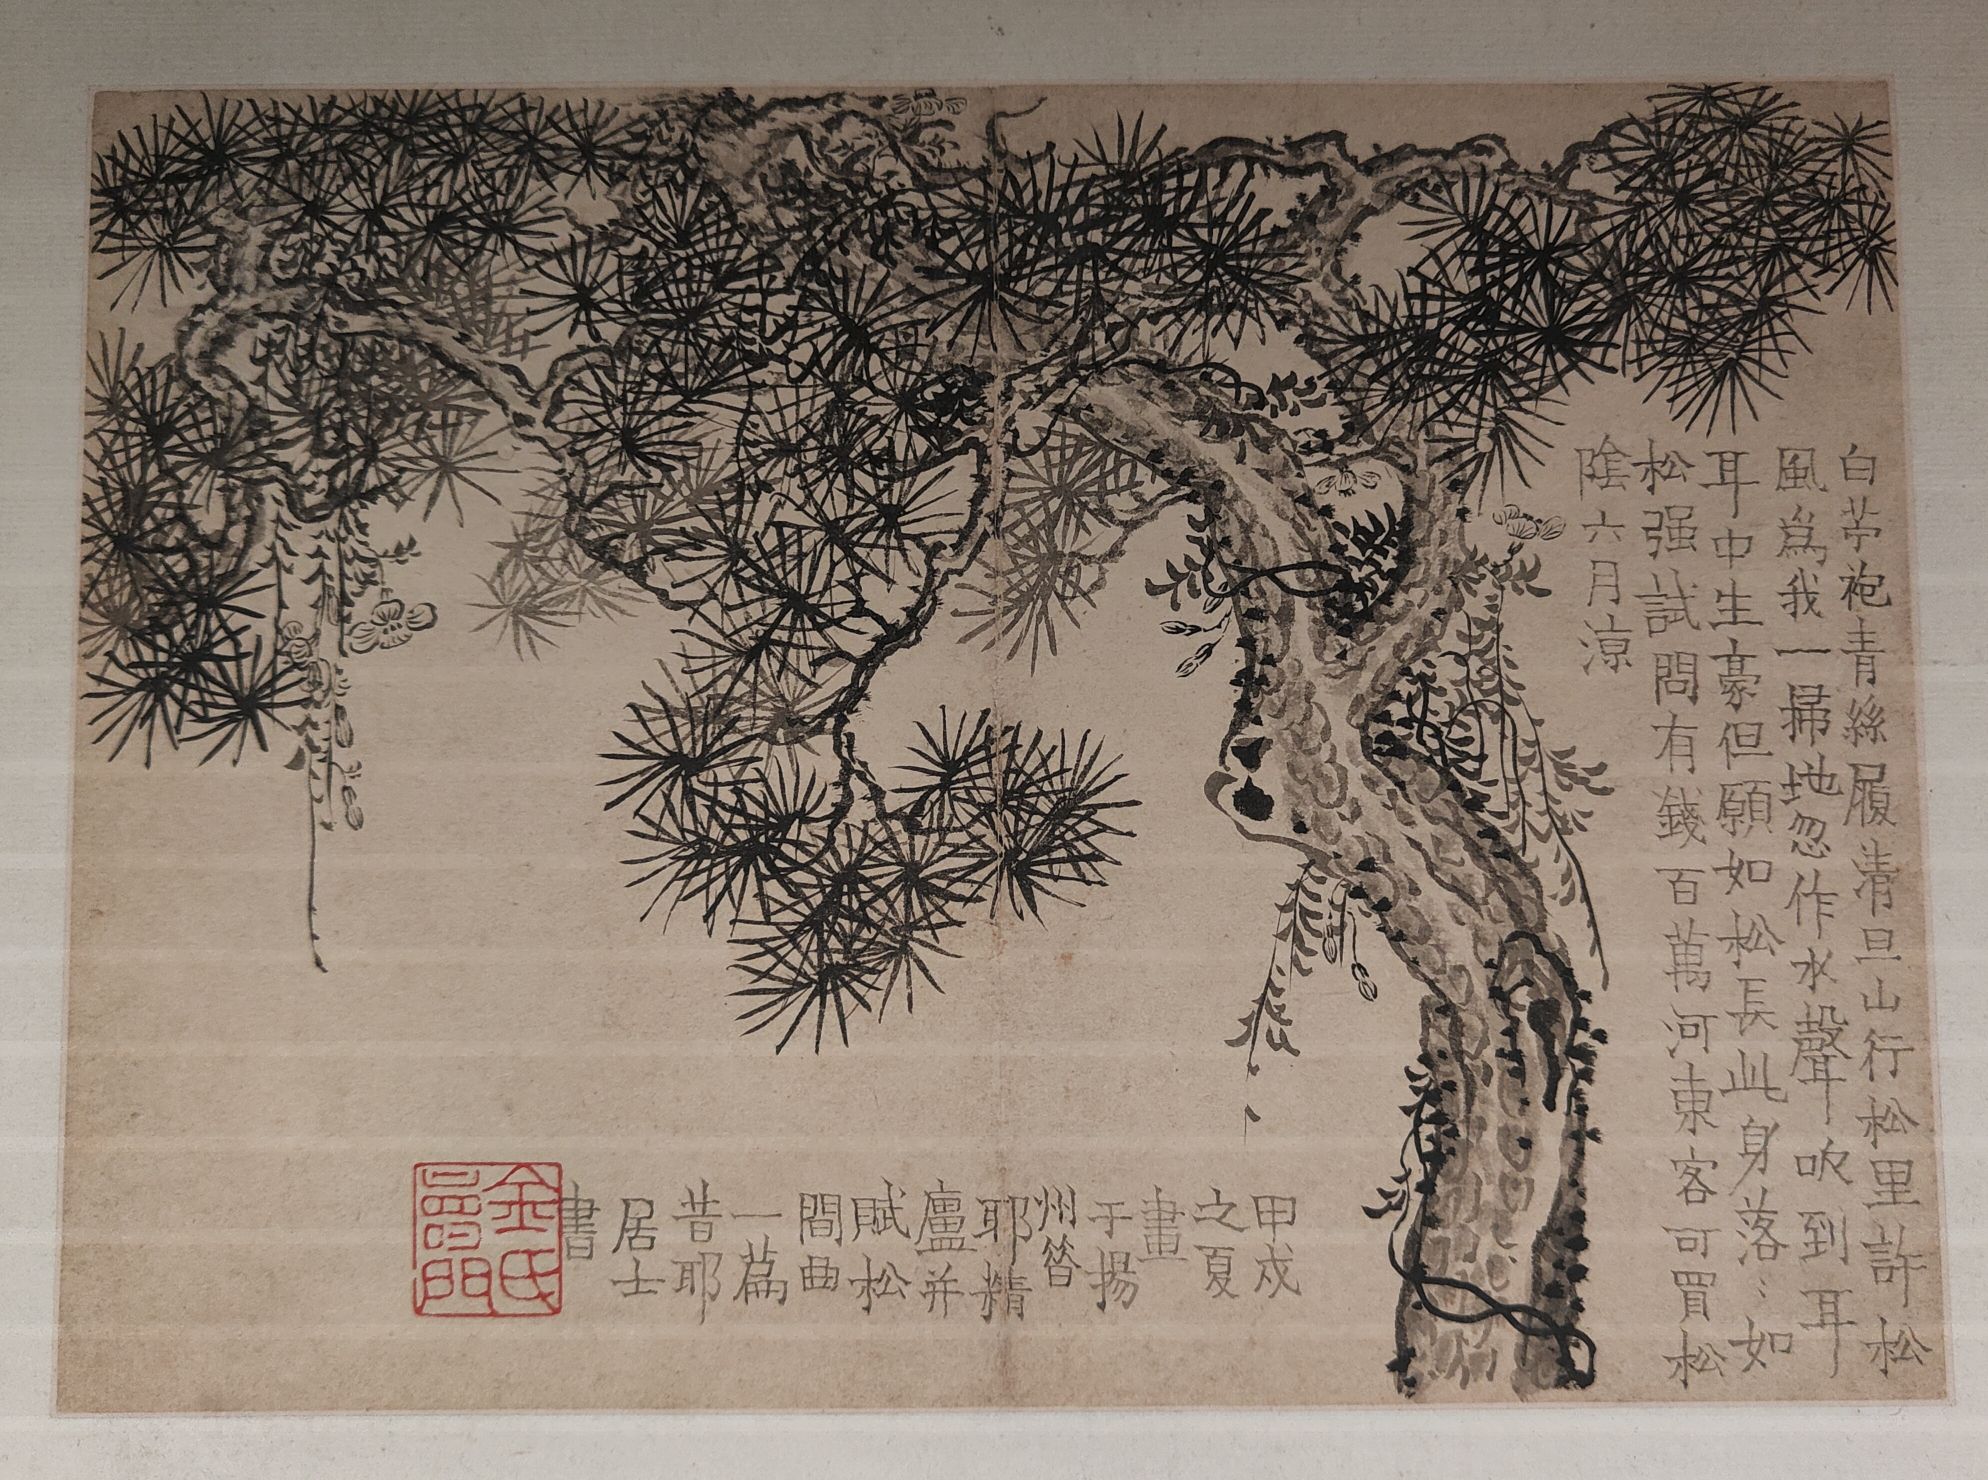 白苧袍青絲履清旦山行松里許松
風為我一掃地忽作水聲吹到耳
耳中生豪但願如松長此身落〻如
松强試問有錢百萬河東客可買松
陰六月涼
甲戌
之夏
畫
于揚
州昝
耶精
廬并
賦松
間曲
一篇
昔耶
居士
書
金氏
壽門